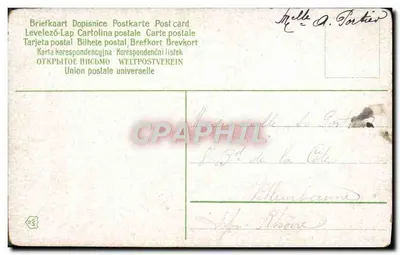 Briefkaart Dopisnice Postkarte Post card
Levelező-Lap Cartolina postale Carte postale
Tarjeta postal Bilhete postal Brefkort Brevkort
Karta korespondencyjna Korespondenční listek
ОТКРЫТОЕ ПИСЬМО WELTPOSTVEREIN
Union postale universelle
Melle A. Portier
CPARAMA.COM
de la Côte
Villeurbanne
Rhône